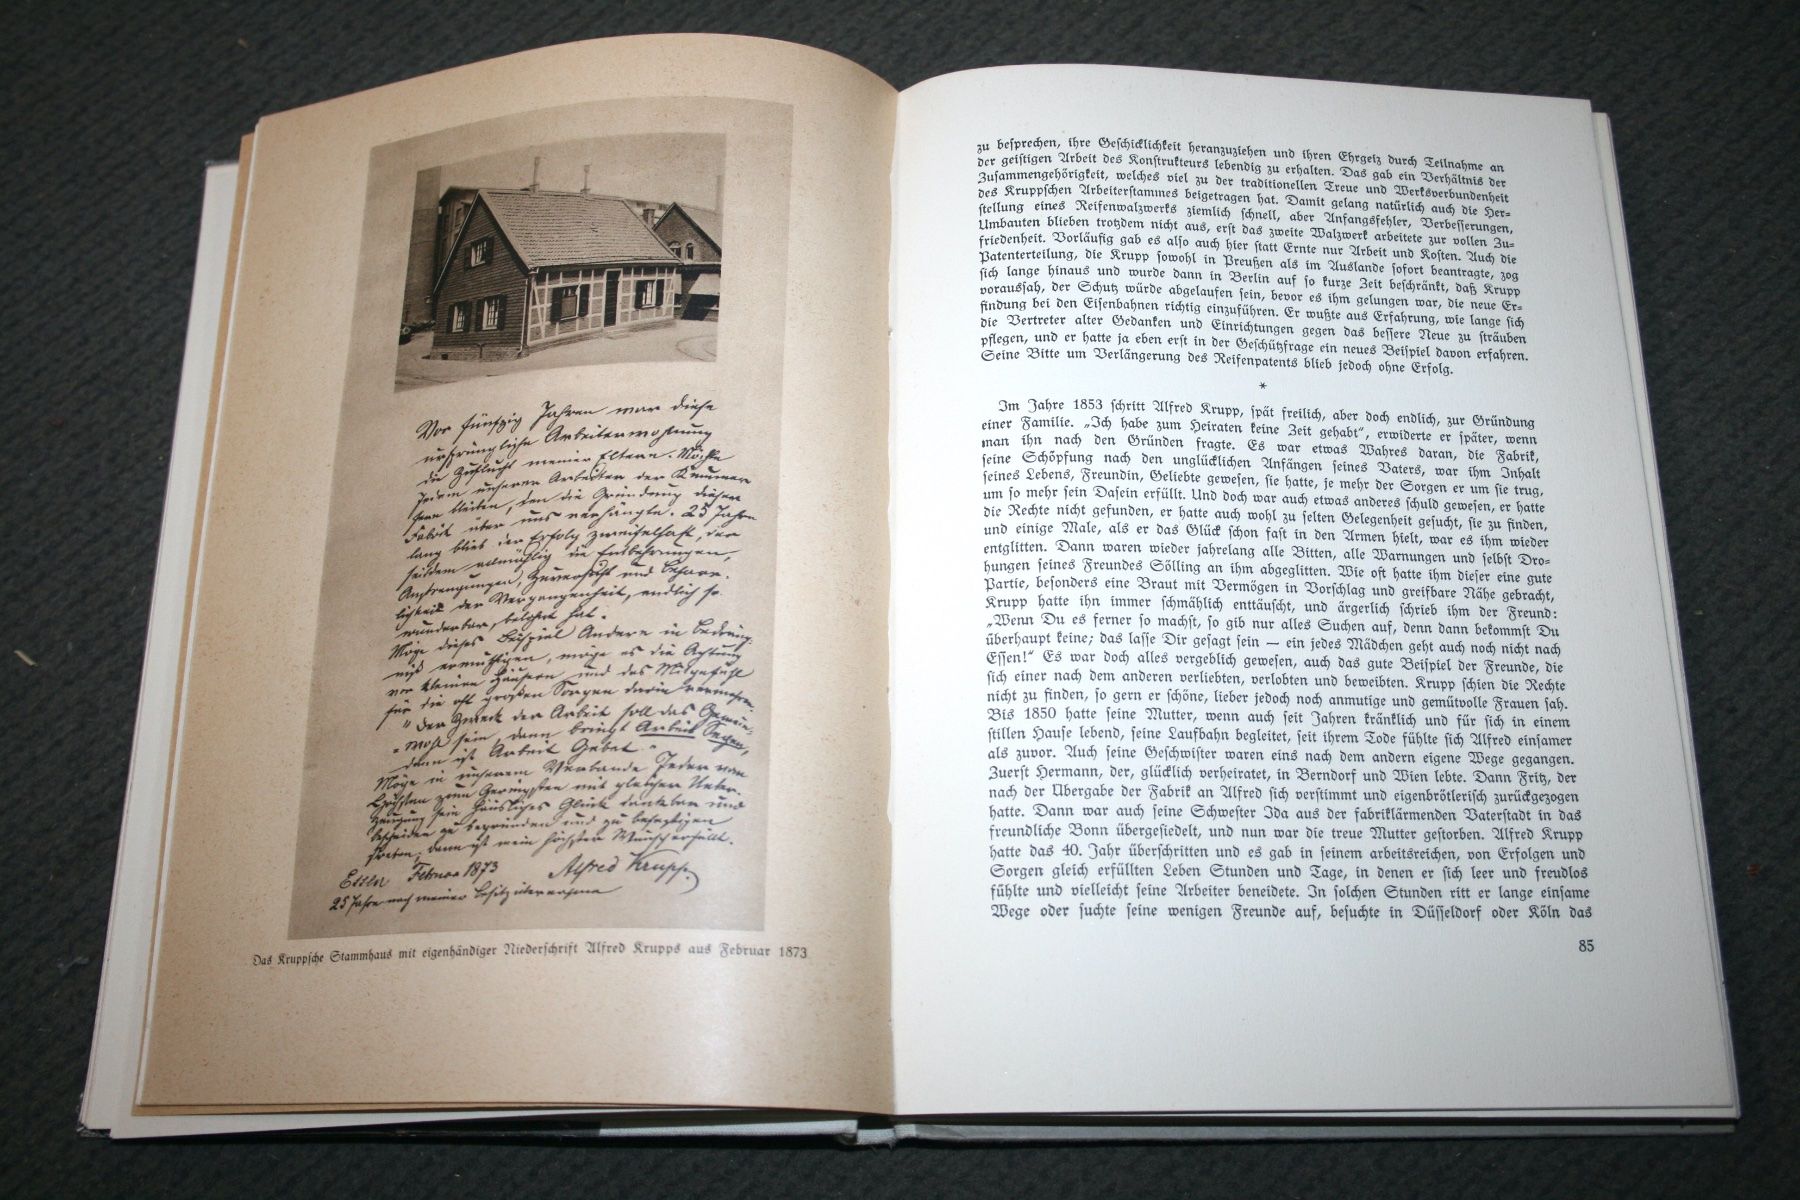 Vor fünfzig Jahren war diese
ursprüngliche Arbeiterwohnung
die Zuflucht meiner Eltern. Möchte
Jedem unserer Arbeiter der Kummer
fern bleiben, den die Gründung dieser
Fabrik über uns verhängte. 25 Jahre
lang blieb der Erfolg zweifelhaft, der
seitdem allmählig die Entbehrungen,
Anstrengungen, Zuversicht und Beharr-
lichkeit der Vergangenheit, endlich so
wunderbar belohnt hat.
Möge dieses Beispiel Andere in Bedräng-
niß ermuthigen, möge es die Achtung
vor kleinen Häusern und das Mitgefühl
für die oft großen Sorgen darin vermehren.
"Der Zweck der Arbeit soll das Gemein-
wohl sein, dann bringt Arbeit Segen,
dann ist Arbeit Gebet."
Möge in unserem Verbande Jeder vom
Höchsten zum Geringsten mit gleicher Ueber-
zeugung sein häusliches Glück dankbar und
bescheiden zu begründen und zu befestigen
streben; dann ist mein höchster Wunsch erfüllt.
Essen Februar 1873 Alfred Krupp.
25 Jahre nach meiner Besitzübernahme
Das Kruppsche Stammhaus mit eigenhändiger Niederschrift Alfred Krupps aus Februar 1873
zu besprechen, ihre Geschicklichkeit heranzuziehen und ihren Ehrgeiz durch Teilnahme an
der geistigen Arbeit des Konstrukteurs lebendig zu erhalten. Das gab ein Verhältnis der
Zusammengehörigkeit, welches viel zu der traditionellen Treue und Werksverbundenheit
des Kruppschen Arbeiterstammes beigetragen hat. Damit gelang natürlich auch die Her-
stellung eines Reifenwalzwerks ziemlich schnell, aber Anfangsfehler, Verbesserungen,
Umbauten blieben trotzdem nicht aus, erst das zweite Walzwerk arbeitete zur vollen Zu-
friedenheit. Vorläufig gab es also auch hier statt Ernte nur Arbeit und Kosten. Auch die
Patenterteilung, die Krupp sowohl in Preußen als im Auslande sofort beantragte, zog
sich lange hinaus und wurde dann in Berlin auf so kurze Zeit beschränkt, daß Krupp
voraussah, der Schutz würde abgelaufen sein, bevor es ihm gelungen war, die neue Er-
findung bei den Eisenbahnen richtig einzuführen. Er wußte aus Erfahrung, wie lange sich
die Vertreter alter Gedanken und Einrichtungen gegen das bessere Neue zu sträuben
pflegen, und er hatte ja eben erst in der Geschützfrage ein neues Beispiel davon erfahren.
Seine Bitte um Verlängerung des Reifenpatents blieb jedoch ohne Erfolg.
*
Im Jahre 1853 schritt Alfred Krupp, spät freilich, aber doch endlich, zur Gründung
einer Familie. „Ich habe zum Heiraten keine Zeit gehabt“, erwiderte er später, wenn
man ihn nach den Gründen fragte. Es war etwas Wahres daran, die Fabrik,
seine Schöpfung nach den unglücklichen Anfängen seines Vaters, war ihm Inhalt
seines Lebens, Freundin, Geliebte gewesen, sie hatte, je mehr der Sorgen er um sie trug,
um so mehr sein Dasein erfüllt. Und doch war auch etwas anderes schuld gewesen, er hatte
die Rechte nicht gefunden, er hatte auch wohl zu selten Gelegenheit gesucht, sie zu finden,
und einige Male, als er das Glück schon fast in den Armen hielt, war es ihm wieder
entglitten. Dann waren wieder jahrelang alle Bitten, alle Warnungen und selbst Dro-
hungen seines Freundes Sölling an ihm abgeglitten. Wie oft hatte ihm dieser eine gute
Partie, besonders eine Braut mit Vermögen in Vorschlag und greifbare Nähe gebracht,
Krupp hatte ihn immer schmählich enttäuscht, und ärgerlich schrieb ihm der Freund:
„Wenn Du es ferner so machst, so gib nur alles Suchen auf, denn dann bekommst Du
überhaupt keine; das lasse Dir gesagt sein — ein jedes Mädchen geht auch noch nicht nach
Essen!“ Es war doch alles vergeblich gewesen, auch das gute Beispiel der Freunde, die
sich einer nach dem anderen verliebten, verlobten und beweibten. Krupp schien die Rechte
nicht zu finden, so gern er schöne, lieber jedoch noch anmutige und gemütvolle Frauen sah.
Bis 1850 hatte seine Mutter, wenn auch seit Jahren kränklich und für sich in einem
stillen Hause lebend, seine Laufbahn begleitet, seit ihrem Tode fühlte sich Alfred einsamer
als zuvor. Auch seine Geschwister waren eins nach dem andern eigene Wege gegangen.
Zuerst Hermann, der, glücklich verheiratet, in Berndorf und Wien lebte. Dann Fritz, der
nach der Übergabe der Fabrik an Alfred sich verstimmt und eigenbrötlerisch zurückgezogen
hatte. Dann war auch seine Schwester Ida aus der fabriklärmenden Vaterstadt in das
freundliche Bonn übergesiedelt, und nun war die treue Mutter gestorben. Alfred Krupp
hatte das 40. Jahr überschritten und es gab in seinem arbeitsreichen, von Erfolgen und
Sorgen gleich erfüllten Leben Stunden und Tage, in denen er sich leer und freudlos
fühlte und vielleicht seine Arbeiter beneidete. In solchen Stunden ritt er lange einsame
Wege oder suchte seine wenigen Freunde auf, besuchte in Düsseldorf oder Köln das
85